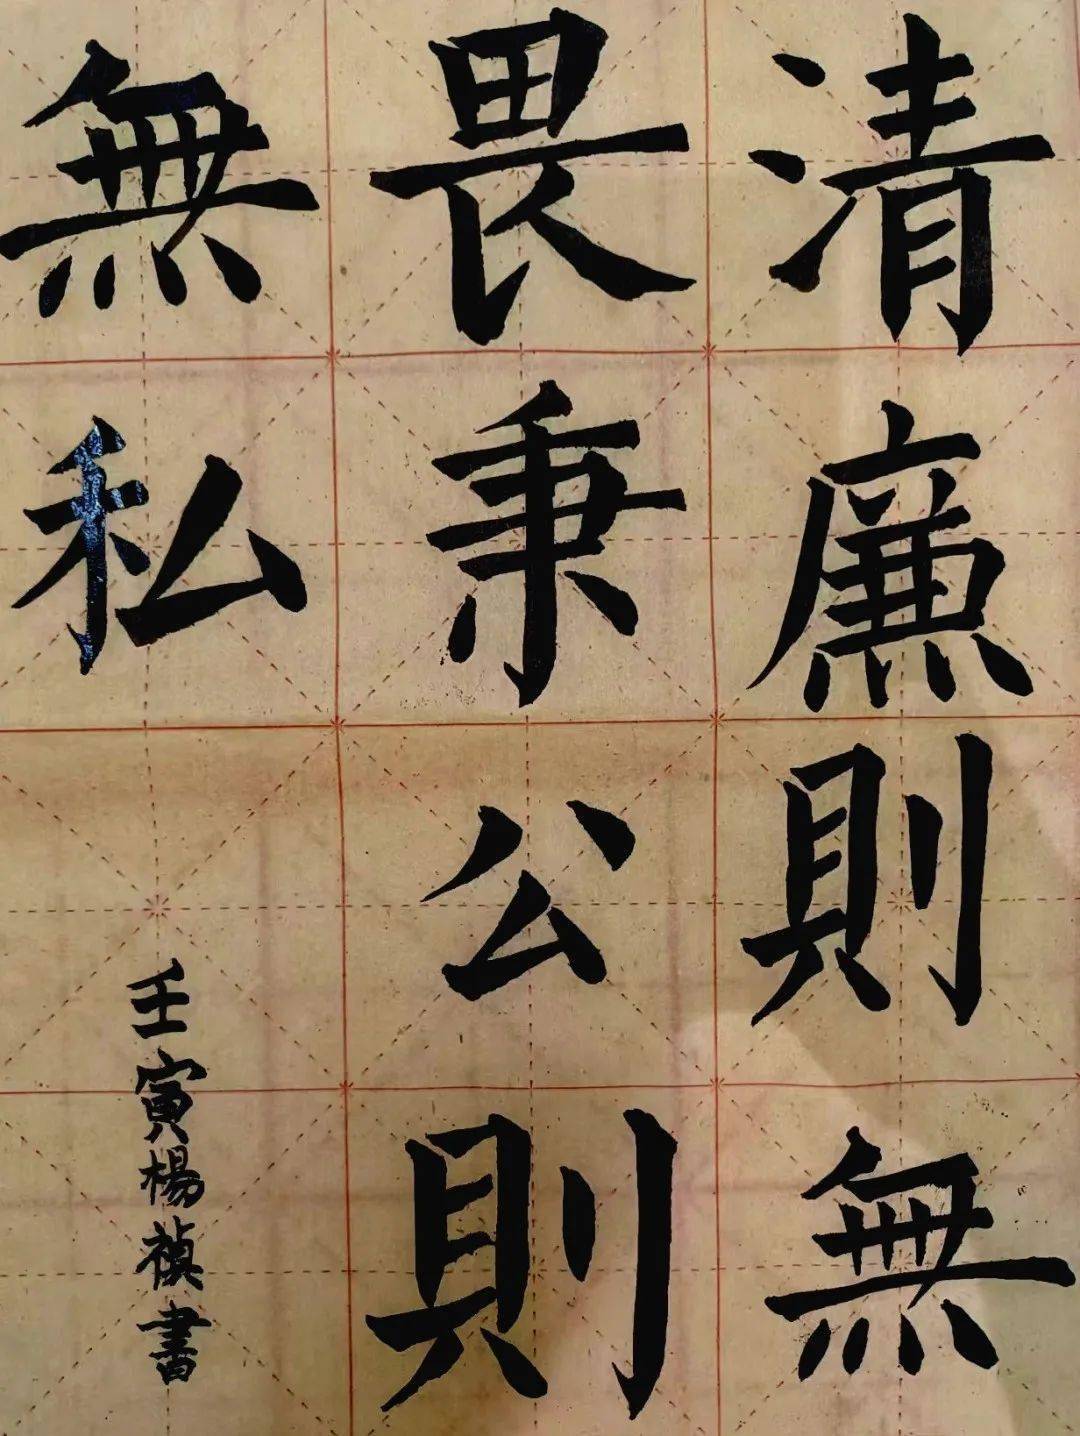 清廉則無
畏秉公則
無私
壬寅楊禎書